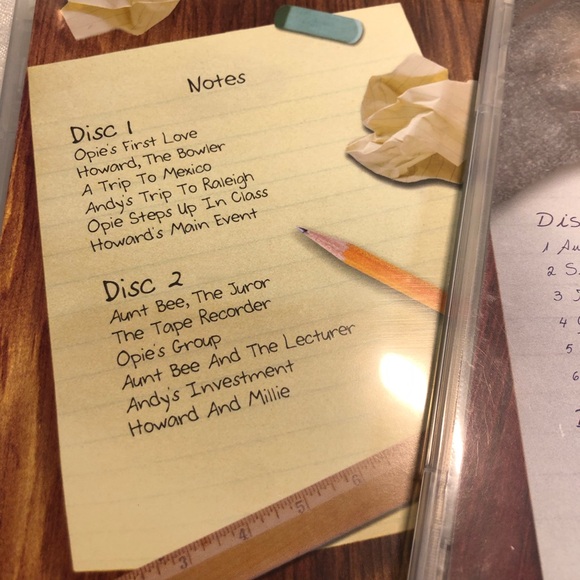 Notes
Disc 1
Opie's First Love
Howard, The Bowler
A Trip To Mexico
Andy's Trip To Raleigh
Opie Steps Up In Class
Howard's Main Event
Disc 2
Aunt Bee, The Juror
The Tape Recorder
Opie's Group
Aunt Bee And The Lecturer
Andy's Investment
Howard And Millie
3 4 5 6
1
2
3
4
5
6